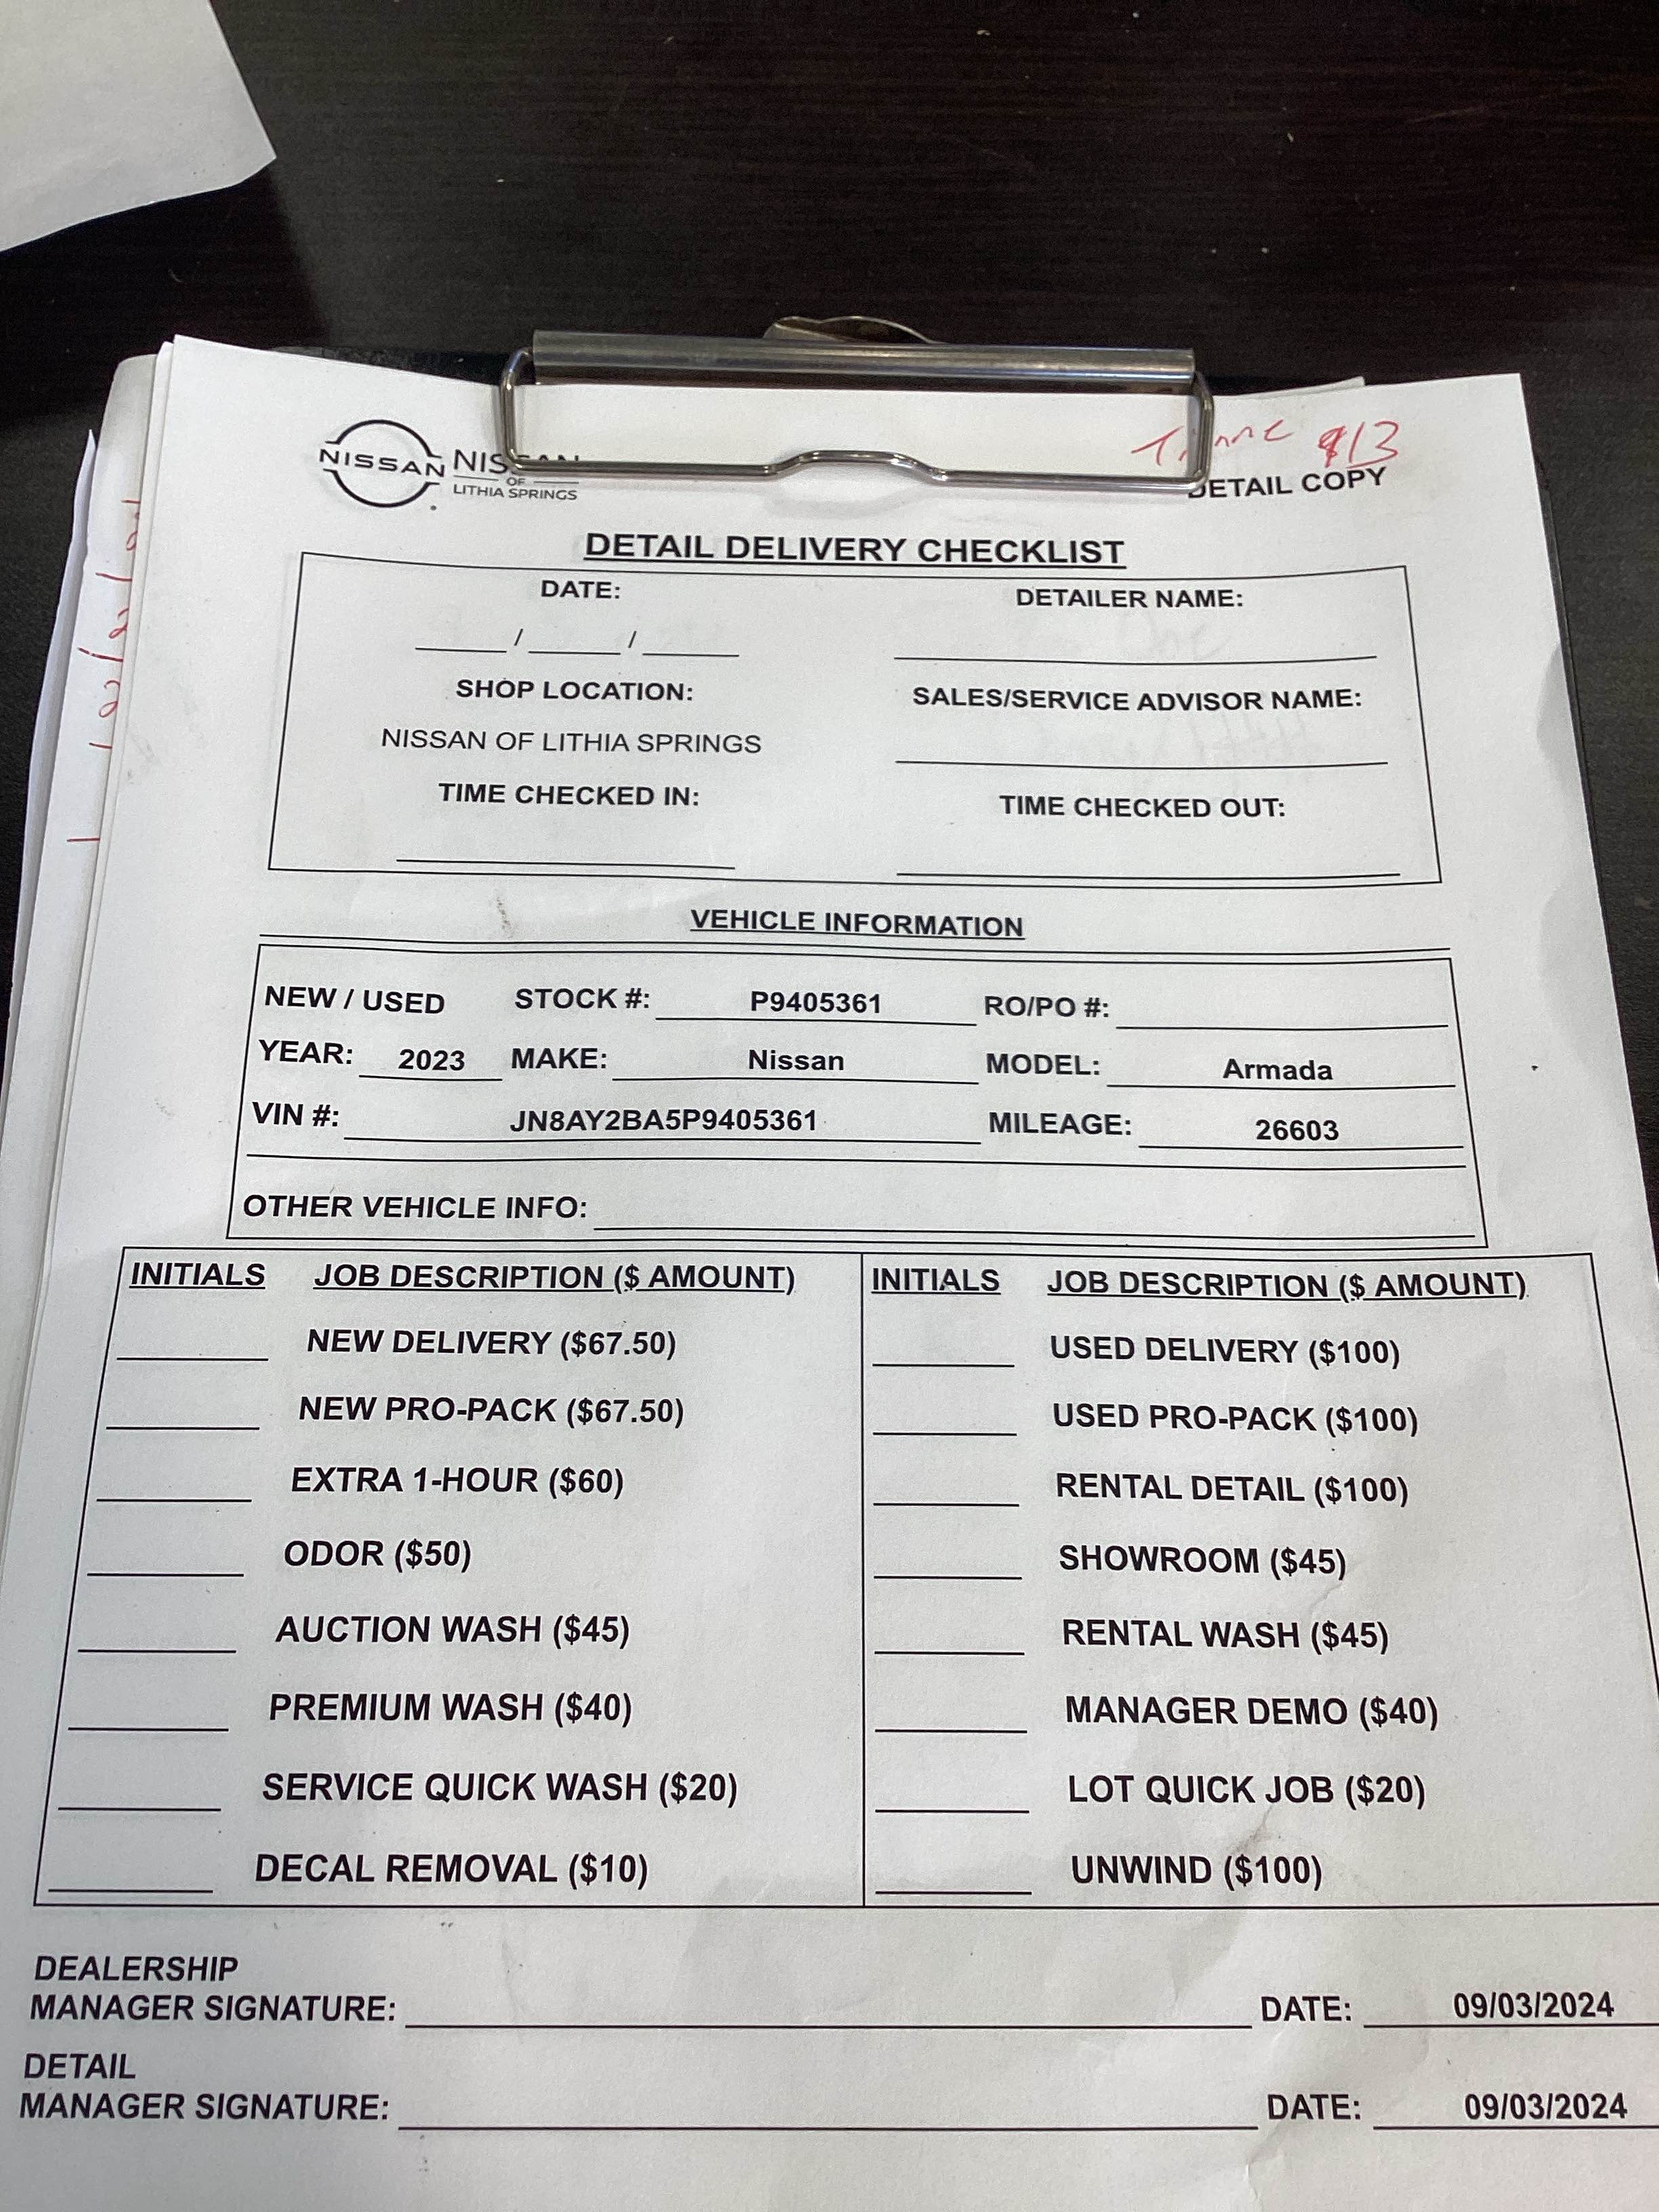 $13
NISSAN
OF
LITHIA SPRINGS
DETAIL COPY
DETAIL DELIVERY CHECKLIST
DATE: DETAILER NAME:
/ /
SHOP LOCATION: SALES/SERVICE ADVISOR NAME:
NISSAN OF LITHIA SPRINGS
TIME CHECKED IN: TIME CHECKED OUT:
VEHICLE INFORMATION
NEW / USED STOCK #: P9405361 RO/PO #:
YEAR: 2023 MAKE: Nissan MODEL: Armada
VIN #: JN8AY2BA5P9405361 MILEAGE: 26603
OTHER VEHICLE INFO:
INITIALS JOB DESCRIPTION ($ AMOUNT) INITIALS JOB DESCRIPTION ($ AMOUNT)
NEW DELIVERY ($67.50) USED DELIVERY ($100)
NEW PRO-PACK ($67.50) USED PRO-PACK ($100)
EXTRA 1-HOUR ($60) RENTAL DETAIL ($100)
ODOR ($50) SHOWROOM ($45)
AUCTION WASH ($45) RENTAL WASH ($45)
PREMIUM WASH ($40) MANAGER DEMO ($40)
SERVICE QUICK WASH ($20) LOT QUICK JOB ($20)
DECAL REMOVAL ($10) UNWIND ($100)
DEALERSHIP
MANAGER SIGNATURE: DATE: 09/03/2024
DETAIL
MANAGER SIGNATURE: DATE: 09/03/2024